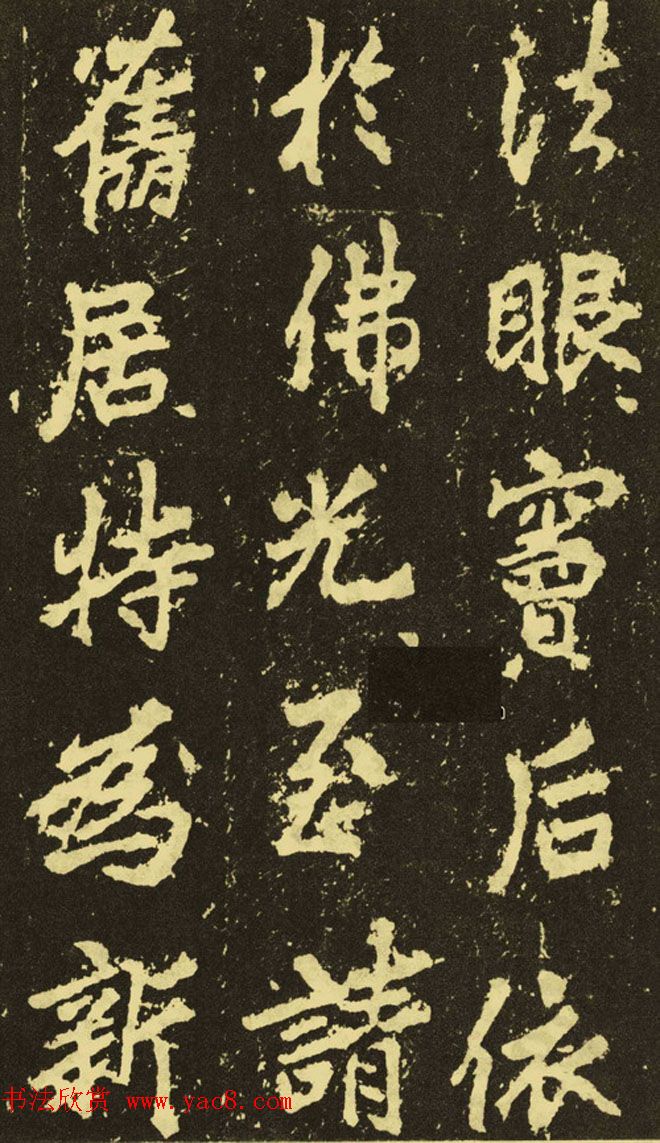 法眼竇后依
於佛光至請
舊居特為新
书法欣赏 www.yac8.com